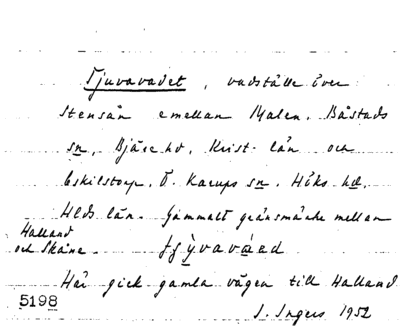 Tjuvavadet, vadställe över
Stensån emellan Malen, Båstads
sn, Bjäre hd, Krist. län och
Eskilstorp, Ö. Karups sn. Höks hd,
Hlds län. Gammalt gränsmärke mellan
Halland
och Skåne.
Här gick gamla vägen till Halland
5198
I. Ingers 1952